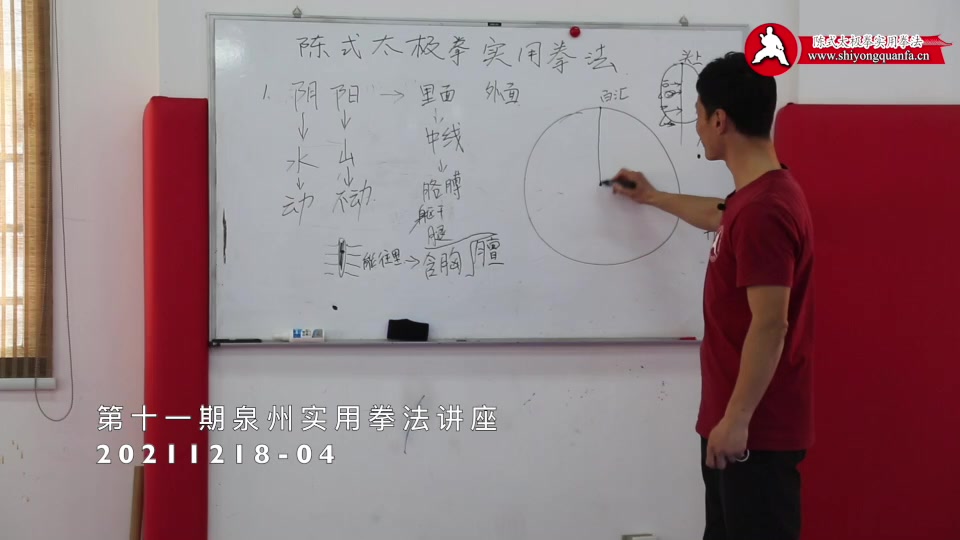 陈式太极拳实用拳法
陈式太极拳实用拳法
www.shiyongquanfa.cn
1. 阴 阳 → 里面 外面
百汇
头上
中线
水 山
动 不动
胳膊
躯干
腿
往里 → 含胸
第十一期泉州实用拳法讲座
20211218-04